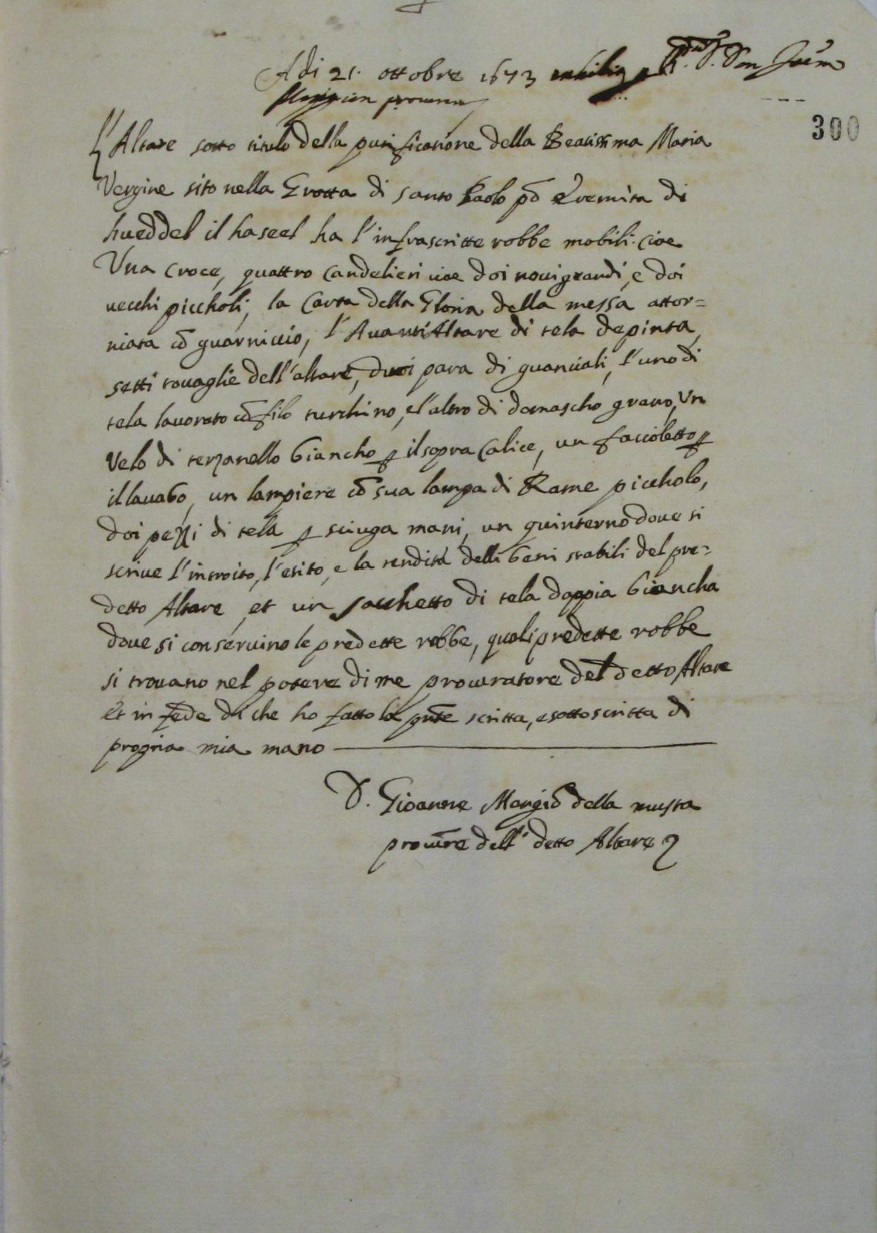 A di 21. ottobre 1673 exhibita R.dus D. Don Joem
procurem
300
L'Altare sotto titulo della purificatione della Beatissima Maria
Vergine sito nella Grotta di santo Paolo po Eremita di
hued del il haseel ha l'infrascritte robbe mobili cioe
Una croce, quattro candelieri cioe doi novi grandi, e doi
vecchi piccholi, la Carta della Gloria della messa attor=
niata cõ guarniccio, l'AvantiAltare di tela depinta,
setti tovaglie dell'altare, duoi para di guanciali, l'uno di
tela lavorato cõ filo turchino, e l'altro di damascho gravo, Un
Velo di terzanello biancho p il sopra Calice, un faccioletto p
il lavabo, un lampiere cõ sua lampa di Rame piccholo,
doi pezzi di tela p sciuga mani, un quinterno dove si
scrive l'introito, l'esito, e la rendita delli beni stabili del pre=
detto Altare, et un sacchetto di tela doppia biancha
dove si conservino le predette robbe, quali predette robbe
si trovano nel potere di me procuratore del detto Altare
Et in fede di che ho fatto la pnte scritta, e sottoscritta di
propria mia mano
D. Gioanne Mangiõ della musta
procure dell' detto Altare